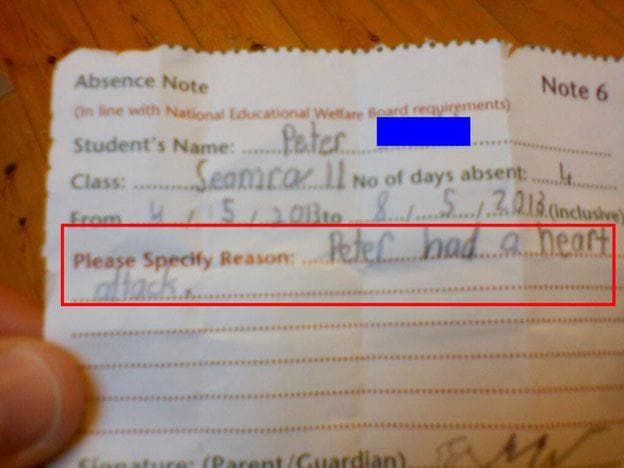 Absence Note
Note 6
(In line with National Educational Welfare Board requirements)
Student's Name: Peter
Class: Seomra 11 No of days absent: 4
From 4 / 5 / 2013 to 8 / 5 / 2013 (inclusive)
Please Specify Reason: Peter had a heart
attack.
Signature: (Parent/Guardian)